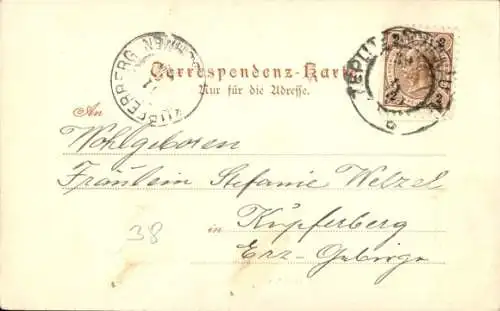 Correspondenz-Karte
Nur für die Adresse.
KUPFERBERG
2 2
An
Wohlgeboren
Fräulein Stefanie Welzel
38
in Kupferberg
Erz-Gebirge